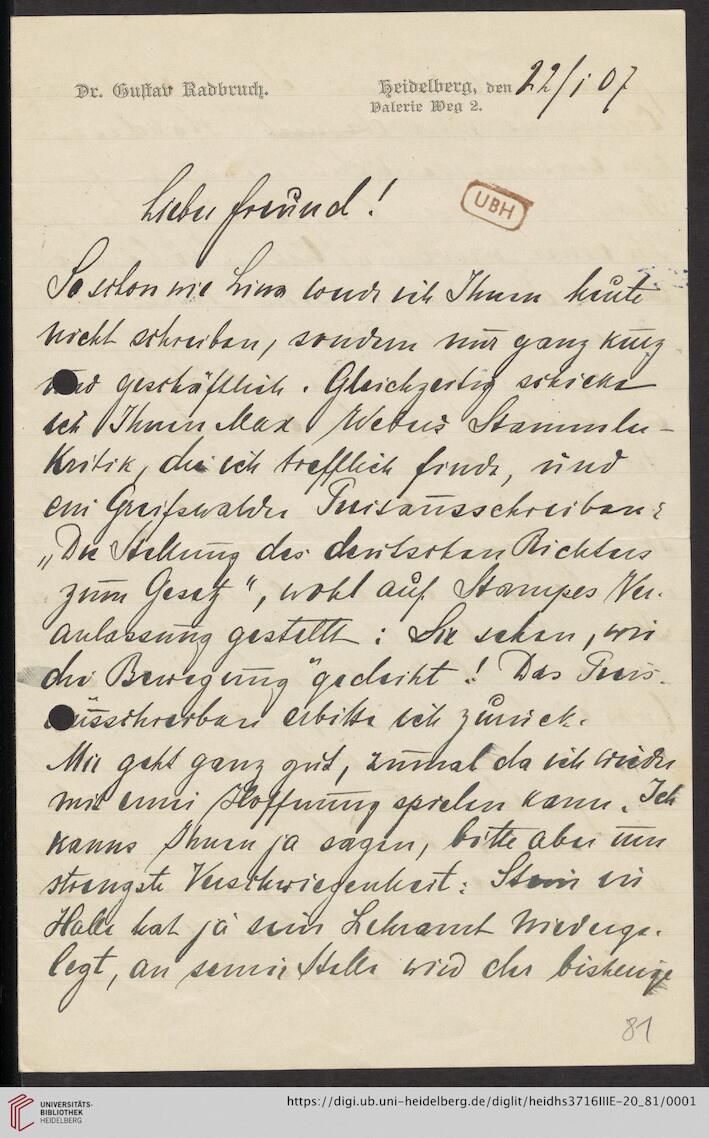 Dr. Gustav Radbruch.
Heidelberg, den 22/I 07
Valerie Weg 2.
Lieber Freund!
UBH
So schön wie Lina werde ich Ihnen heute
nicht schreiben, sondern nur ganz kurz
und geschäftlich. Gleichzeitig schicke
ich Ihnen Max Webers Stammler-
Kritik, die ich trefflich finde, und
ein Greifswalder Preisausschreiben:
„Die Stellung des deutschen Richters
zum Gesetz", wohl auf Stampes Ver-
anlassung gestellt: Sie sehen, wie
die „Bewegung" gedeiht! Das Preis-
ausschreiben erbitte ich zurück.
Mir geht ganz gut, zumal da ich wieder
mit einer Hoffnung spielen kann. Ich
kanns Ihnen ja sagen, bitte aber um
strengste Verschwiegenheit: Stein in
Halle hat ja sein Lehramt niederge-
legt, an seine Stelle wird der bisherige
81
UNIVERSITÄTS-
BIBLIOTHEK
HEIDELBERG
https://digi.ub.uni-heidelberg.de/diglit/heidhs3716IIIE-20_81/0001